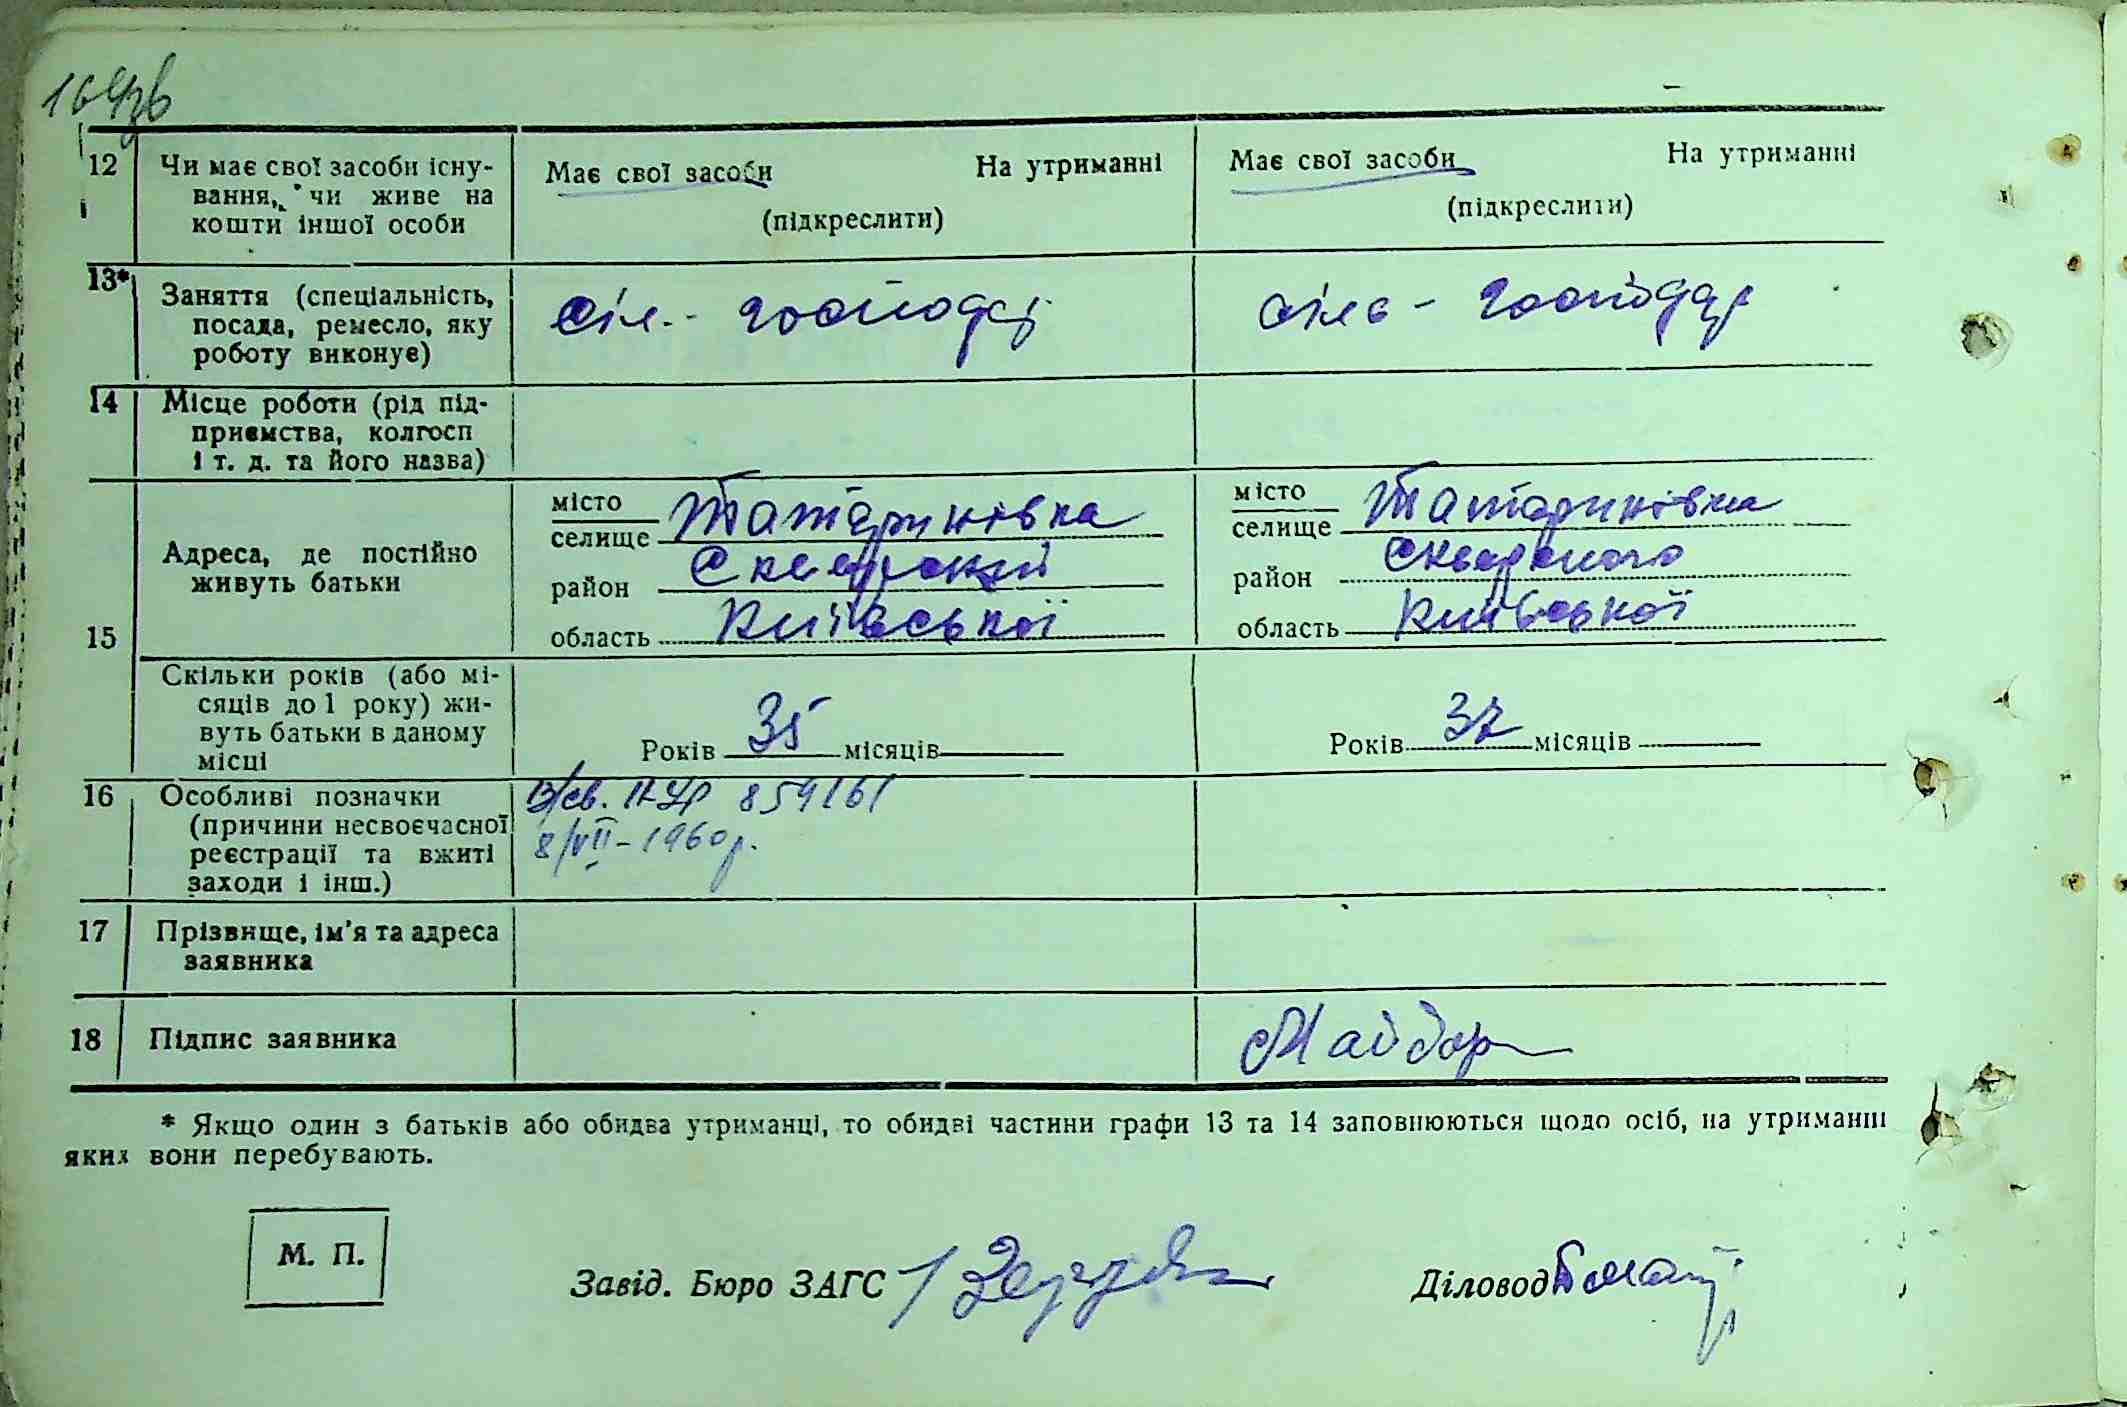 164зв
12 Чи має свої засоби існу- Має свої засоби На утриманні Має свої засоби На утриманні
вання, чи живе на (підкреслити) (підкреслити)
кошти іншої особи
13* Заняття (спеціальність, сіл.- господар сіль - господар
посада, ремесло, яку
роботу виконує)
14 Місце роботи (рід під-
приємства, колгосп
і т. д. та його назва)
15 Адреса, де постійно
живуть батьки
місто
селище Татаринівка
район Сквирський
область Київської
місто
селище Татаринівка
район Сквирського
область Київської
Скільки років (або мі-
сяців до 1 року) жи-
вуть батьки в даному
місці
Років 35 місяців
Років 37 місяців
16 Особливі позначки 859161
(причини несвоєчасної 8/VII-1960р.
реєстрації та вжиті
заходи і інш.)
17 Прізвище, ім'я та адреса
заявника
18 Підпис заявника
* Якщо один з батьків або обидва утриманці, то обидві частини графи 13 та 14 заповнюються щодо осіб, на утриманні
яких вони перебувають.
М. П.
Завід. Бюро ЗАГС Діловод